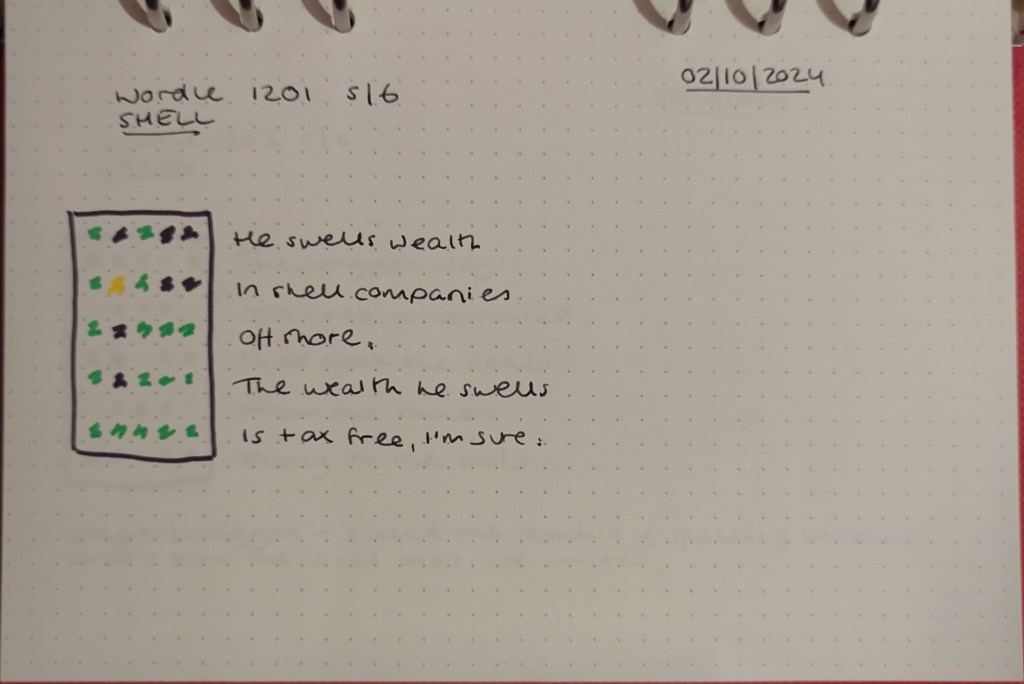 Wordle 1201 5/6
SHELL
02/10/2024
He swells wealth
In shell companies
Off shore.
The wealth he swells
Is tax free, I'm sure.